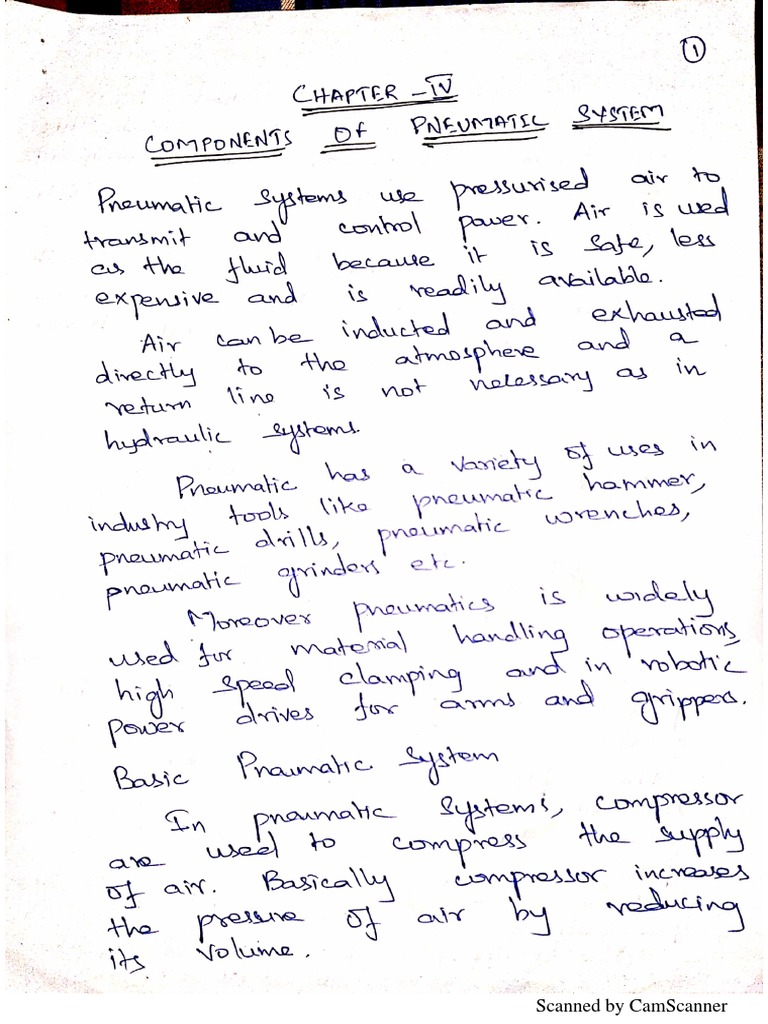 1
CHAPTER - IV
COMPONENTS Of PNEUMATIC SYSTEM
Pneumatic systems use pressurised air to
transmit and control power. Air is used
as the fluid because it is safe, less
expensive and is readily available.
Air can be inducted and exhausted
directly to the atmosphere and a
return line is not necessary as in
hydraulic systems.
Pneumatic has a variety of uses in
industry tools like pneumatic hammer,
pneumatic drills, pneumatic wrenches,
pneumatic grinders etc.
Moreover pneumatics is widely
used for material handling operations,
high speed clamping and in robotic
power drives for arms and grippers.
Basic Pnaumatic System
In pneumatic systems, compressor
are used to compress the supply
of air. Basically compressor increases
the pressure of air by reducing
its volume.
Scanned by CamScanner